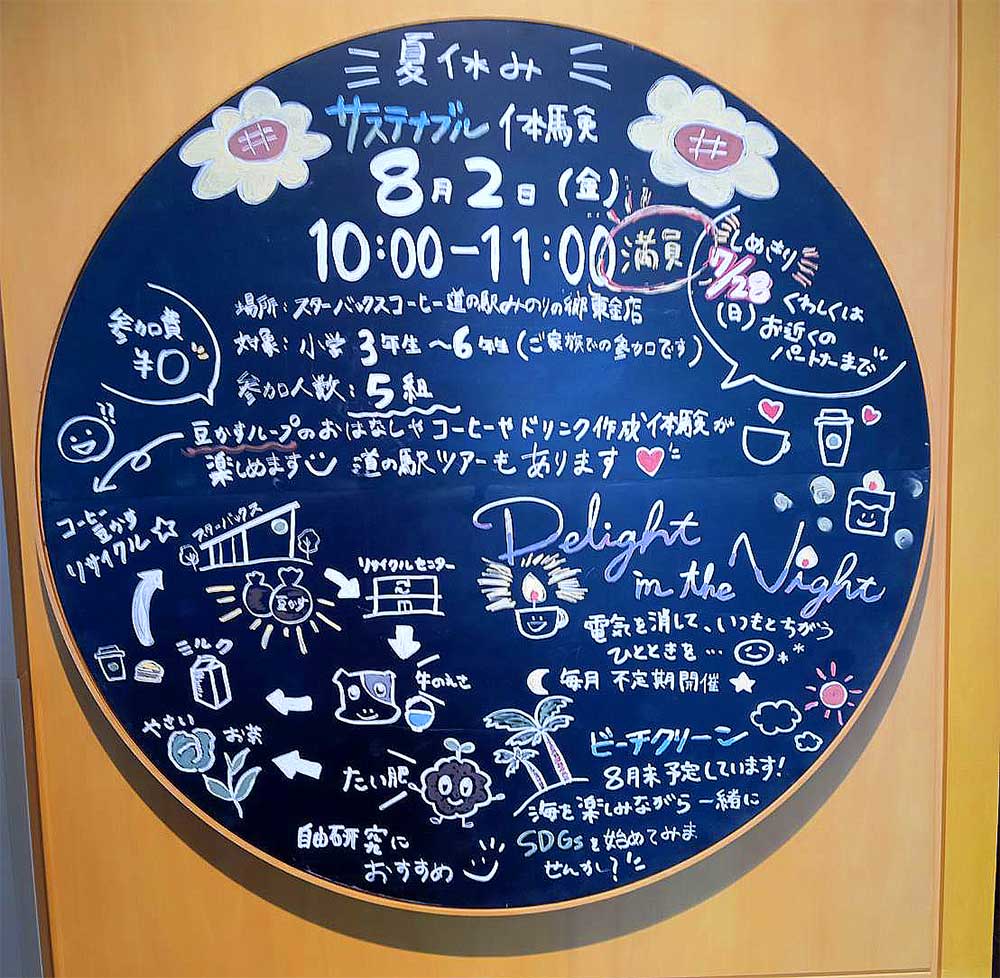 夏休み
サステナブル体験
8月2日(金)
10:00-11:00 満員
しめきり
7/28
(日)
くわしくは
お近くの
パートナーまで
参加費
¥0
場所:スターバックスコーヒー道の駅みのりの郷東金店
対象:小学3年生〜6年生(ご家族での参加口です)
参加人数:5組
豆かすループのおはなしやコーヒーやドリンク作成体験が
楽しめます 道の駅ツアーもあります
コーヒー
豆かす
リサイクル☆
スターバックス
豆かす
リサイクルセンター
牛のえさ
ミルク
やさい
お茶
たい肥
自由研究に
おすすめ
Delight
in the Night
電気を消して、いつもとちがう
ひとときを…
毎月 不定期開催
ビーチクリーン
8月末予定しています!
海を楽しみながら一緒に
SDGsを始めてみま
せんか?